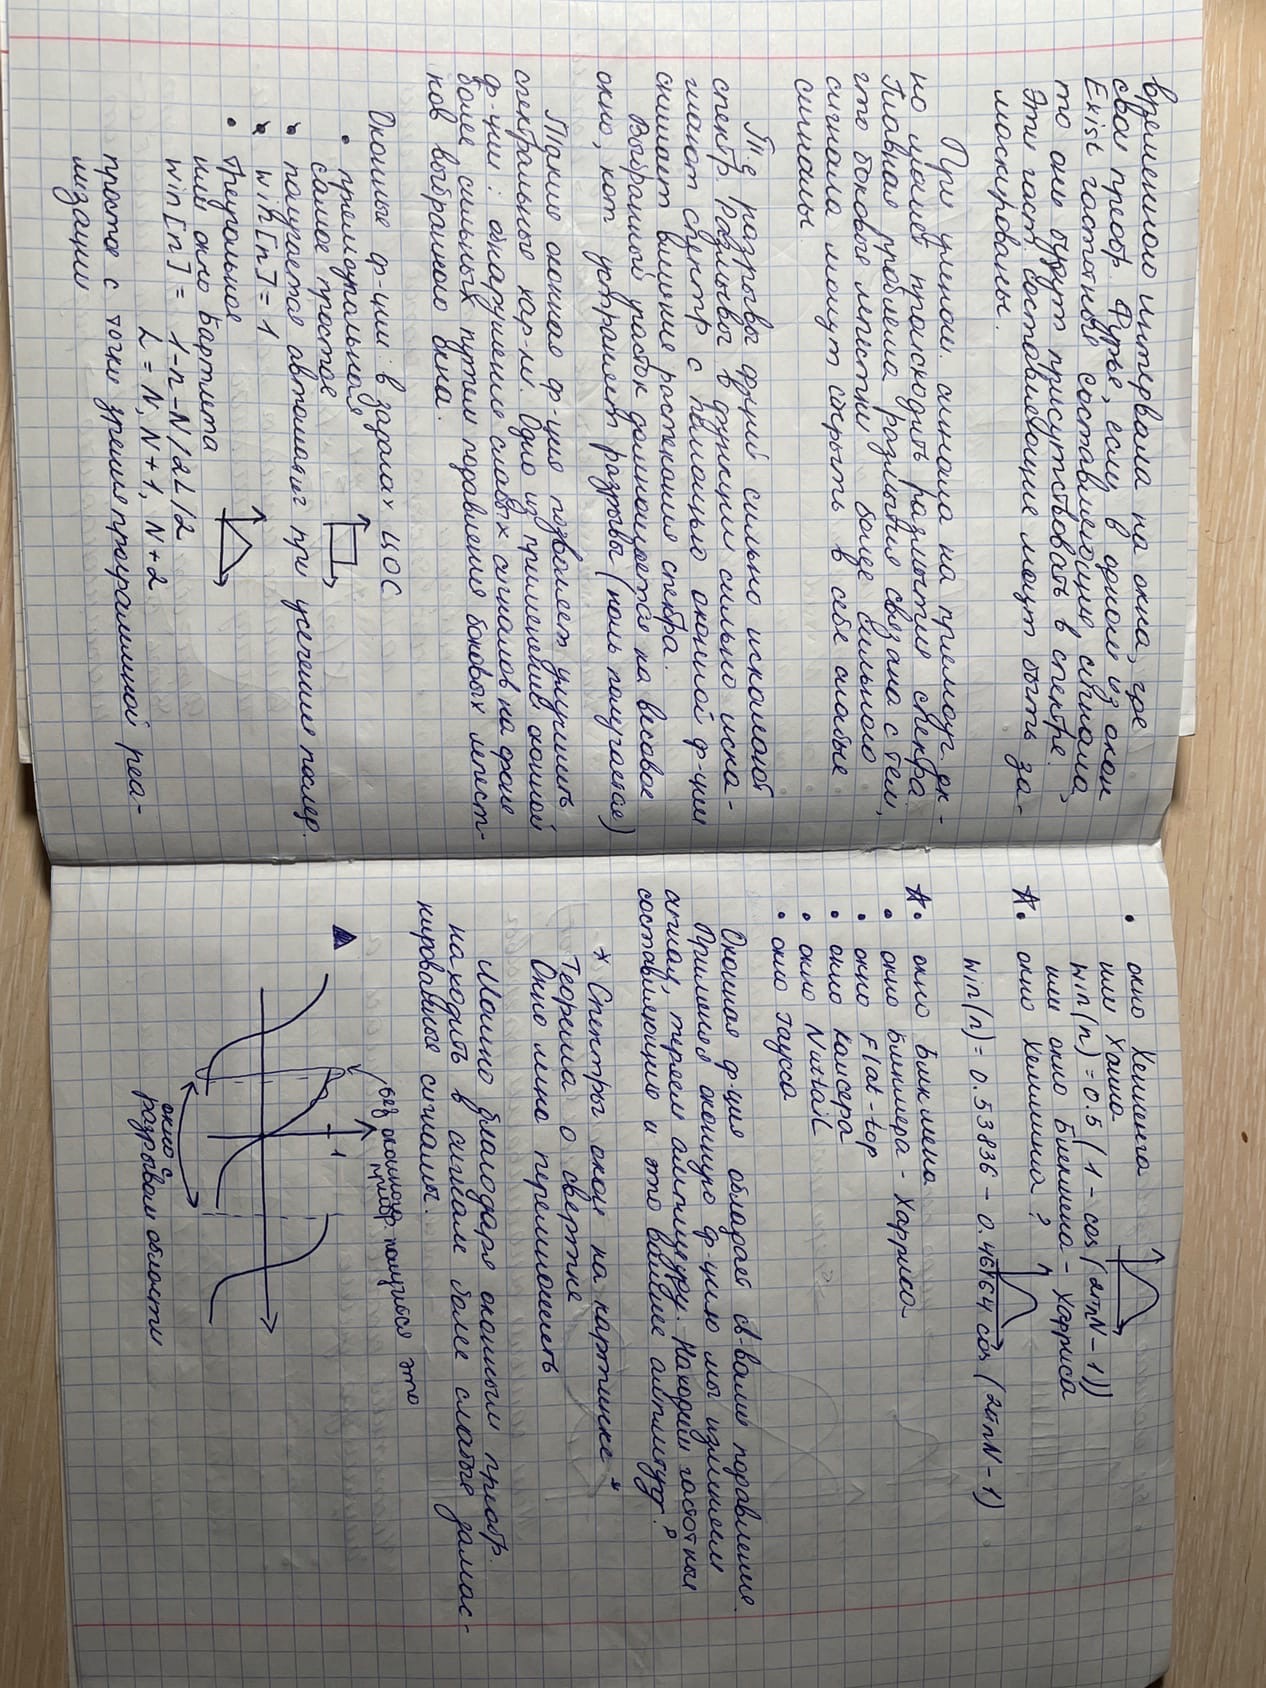 временного интервала на окна, где
свои преобр. Фурье, если в одном из окон
Exist частотные составляющие сигнала,
то они будут присутствовать в спектре.
Эти част. составляющие могут быть за-
маскированы.
При умнож. сигнала на прямоуг. ок-
но может происходить размытия спектра.
Главная проблема размытия связана с тем,
что боковые лепестки более сильного
сигнала могут скрыть в себе слабые
сигналы
Т.е разрывы ф-ций сильно искажают
спектр. Размывы в функции сильно иска-
жают спектр с помощью оконной ф-ции
снижает влияние растекания спектра.
Выбранный участок домножается на весовое
окно, кот устраняет разрывы (ноль получается)
Такие оконная ф-ция позволяет улучшить
спектральные хар-ки. Одно из применений оконной
ф-ции: обнаружение слабых сигналов на фоне
более сильных путем подавления боковых лепест-
ков выбранного окна.
Оконные ф-ции в задачах ЦОС
• прямоугольная
самое простое
• получается автоматич при усечении послед.
• win[n] = 1
• Треугольное
или окно Бартлета
win[n] = 1-n-N/2L/2
L = N, N+1, N+2
простое с точки зрения программной реа-
лизации
• окно Хеннинга
или Ханна
win(n) = 0.5 (1 - cos(2πnN-1))
или окно Блекмена - Харриса
☆• окно Хемминга ?
win(n) = 0.53836 - 0.46164 cos (2πnN-1)
☆• окно Блекмена
• окно Блекмера - Харриса
• окно Flat-top
• окно Кайсера
• окно Nuttall
• окно Гаусса
Оконная ф-ция обладает св-вами подавления.
Применяя оконную ф-цию мы изменяем
сигнал, теряем амплитуду. Находим частотные
составляющие и это важнее амплитуд?
* Спектры окон на картинке *
Теорема о свертке
Окно перемножить
Можно благодаря оконным преобр.
находить в сигнале более слабые замас-
кированные сигналы.
без оконного
преобр. получится это
1
окно с
разрывом области